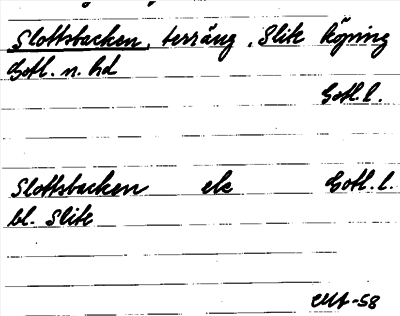 Slottsbacken, terräng, Slite köping
Gotl. n. hd
Gotl. l.
Slottsbacken ek Gotl. l.
bl. Slite
-58